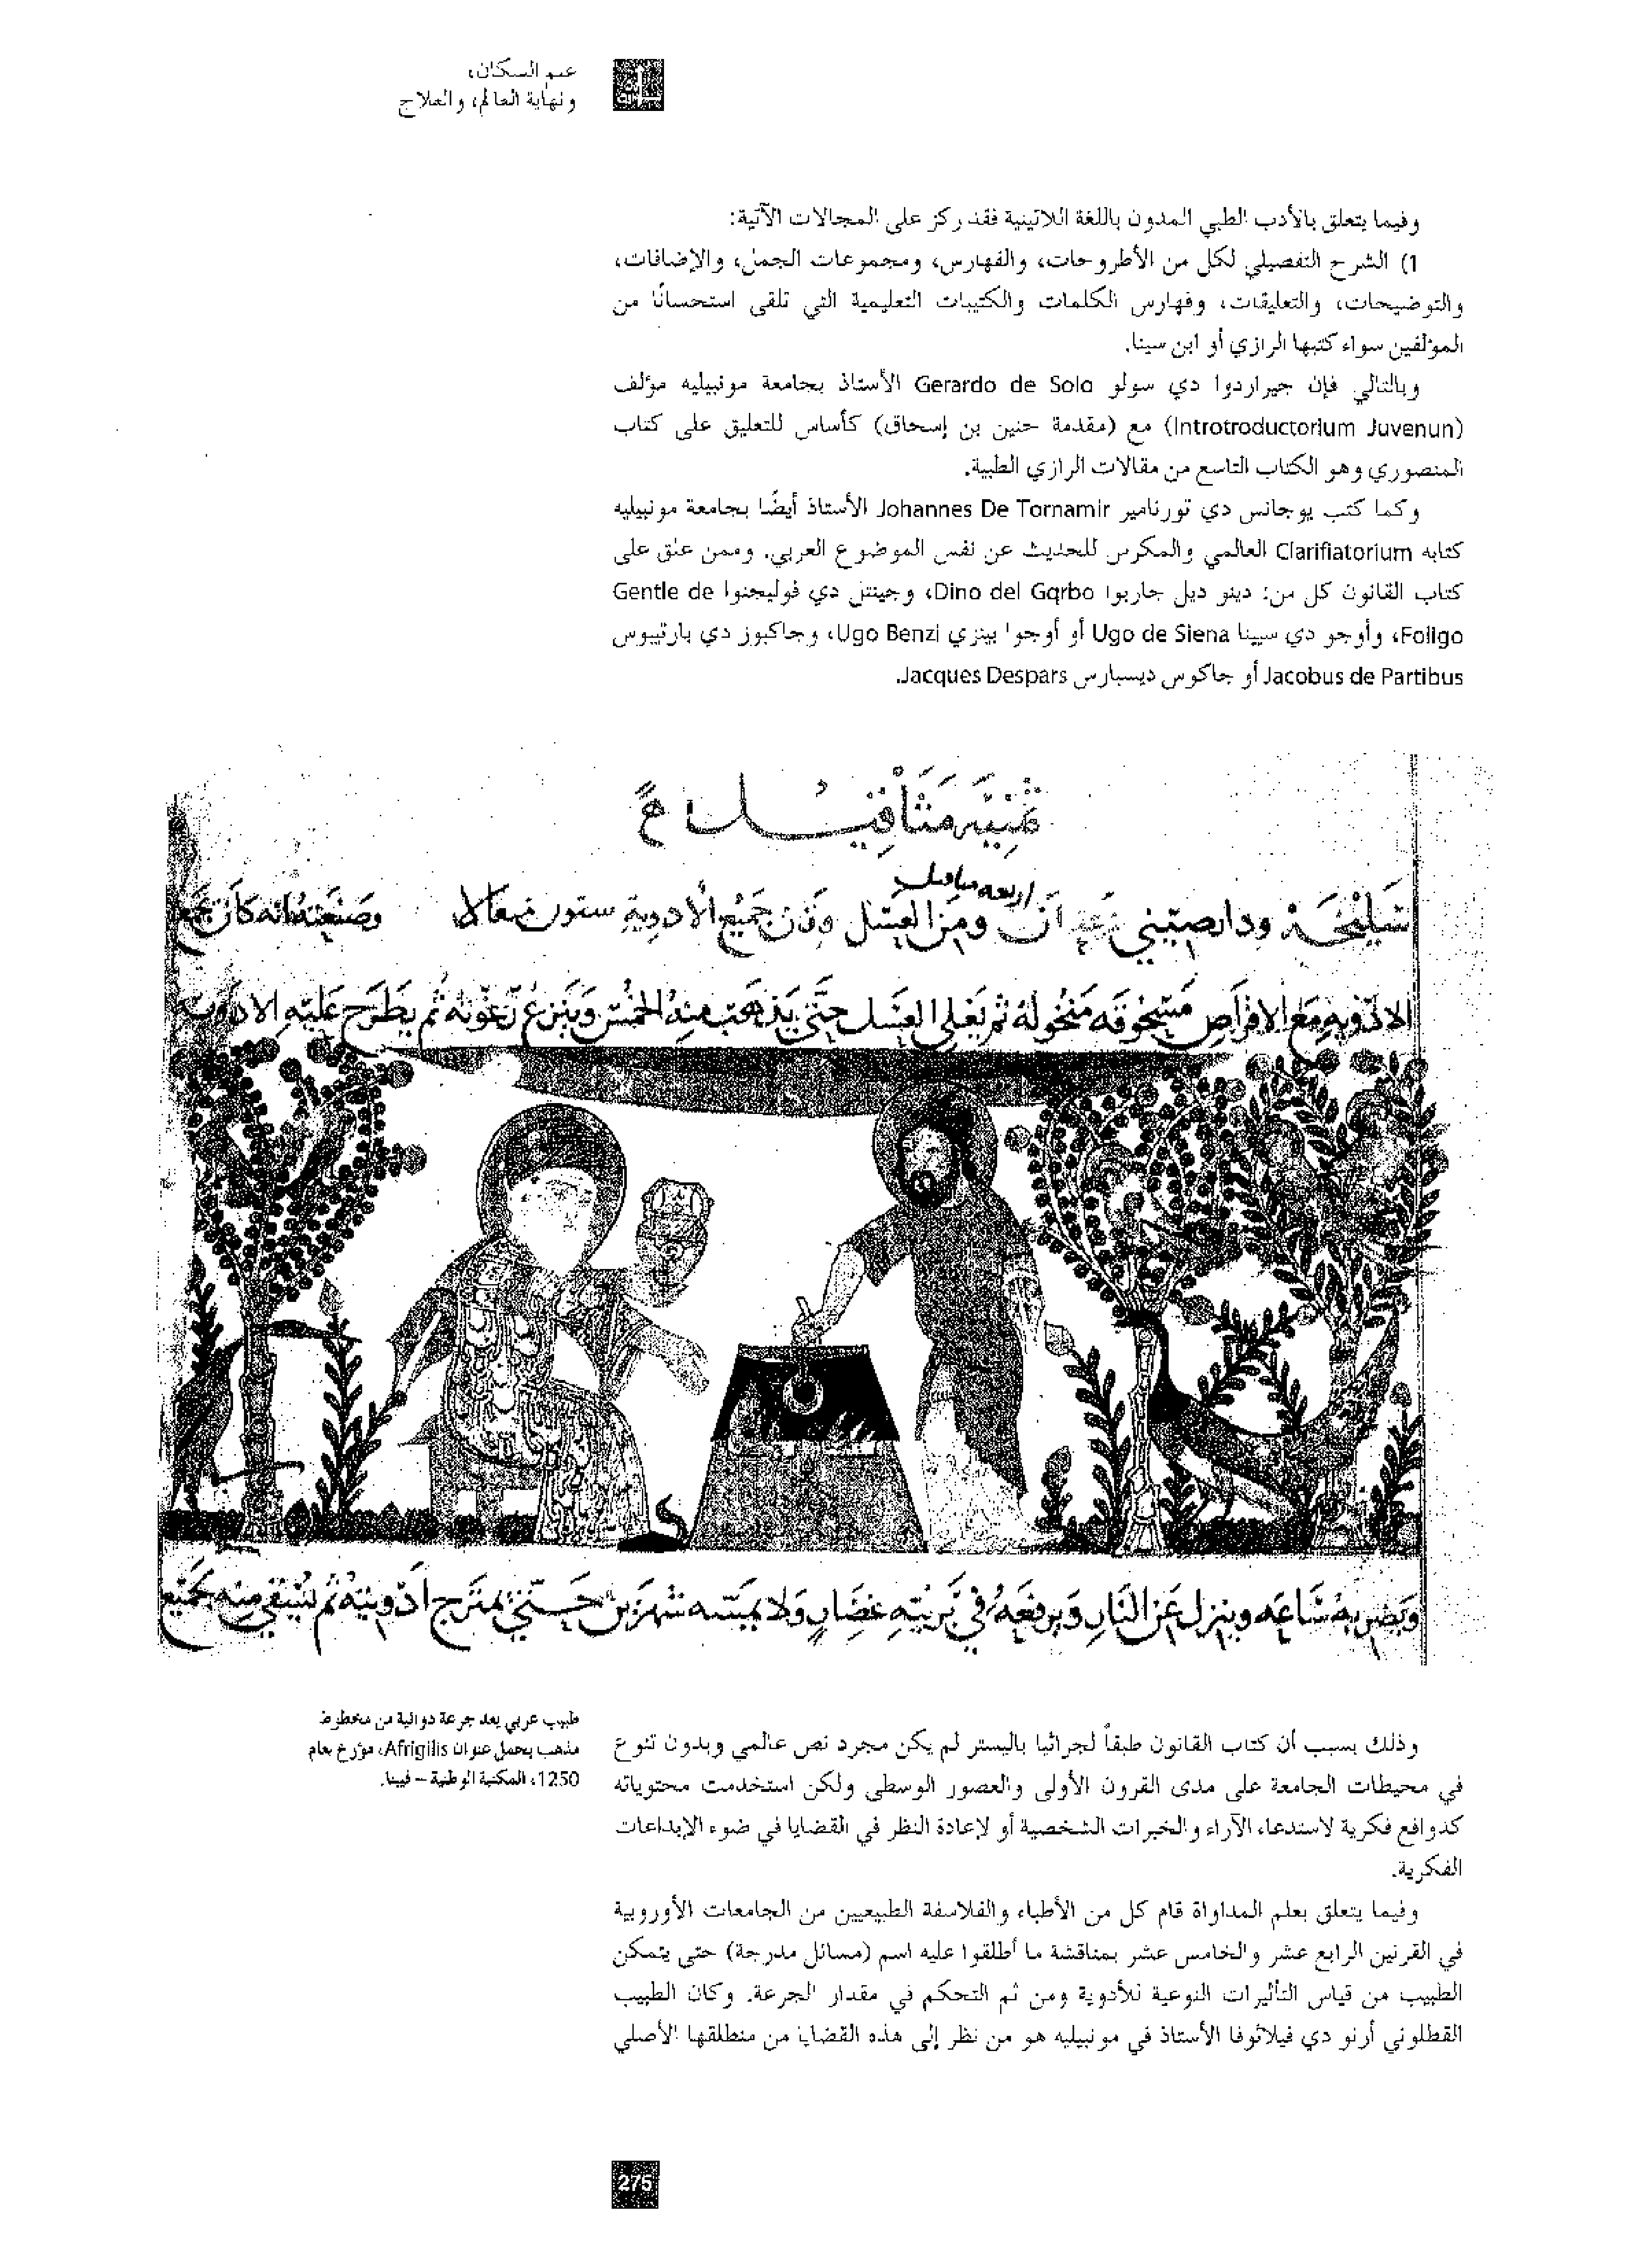 علم السكان،
ونهاية العالم، والعلاج
وفيما يتعلق بالأدب الطبي المدون باللغة اللاتينية فقد ركز على المجالات الآتية:
1) الشرح التفصيلي لكل من الأطروحات، والفهارس، ومجموعات الجمل، والإضافات،
والتوضيحات، والتعليقات، وفهارس الكلمات والكتيبات التعليمية التي تلقى استحسانًا من
المؤلفين سواء كتبها الرازي أو ابن سينا.
وبالتالي فإن جيراردوا دي سولو Gerardo de Solo الأستاذ بجامعة مونبيليه مؤلف
(Introtroductorium Juvenun) مع (مقدمة حنين بن إسحاق) كأساس للتعليق على كتاب
المنصوري وهو الكتاب التاسع من مقالات الرازي الطبية.
وكما كتب يوجانس دي تورنامير Johannes De Tornamir الأستاذ أيضًا بجامعة مونبيليه
كتابه Clarifiatorium العالمي والمكرس للحديث عن نفس الموضوع العربي. وممن علق على
كتاب القانون كل من: دينو ديل جاربوا Dino del Gqrbo، وجينتل دي فوليجنوا Gentle de
Foligo، وأوجو دي سيينا Ugo de Siena أو أوجوا بينزي Ugo Benzi، وجاكبوز دي بارتيبوس
Jacobus de Partibus أو جاكوس ديسبارس Jacques Despars.
ثمنية مثاقيل
اربعة مثاقيل
سليخة ودارصيني من ومن العسل وزن جميع الأدوية ستون مثقالا وصنعته انه كان يجمع
الادوية مع الاقراص مسحوقة منخولة ثم يغلي العسل حتى يذهب منه الخمس وينزع رغوته ثم يطرح عليه الادوية
ويضربه ساعه وينزل عن النار ويرفعه في برنية غضار ولا يمسه شهرين حتى تمتزج ادويته ثم يستقي منه لجميع
طبيب عربي يعد جرعة دوائية من مخطوط
مذهب يحمل عنوان Afrigilis، مؤرخ بعام
1250، المكتبة الوطنية – فيينا.
وذلك بسبب أن كتاب القانون طبقاً لجراثيا باليستر لم يكن مجرد نص عالمي وبدون تنوع
في محيطات الجامعة على مدى القرون الأولى والعصور الوسطى ولكن استخدمت محتوياته
كدوافع فكرية لاستدعاء الآراء والخبرات الشخصية أو لإعادة النظر في القضايا في ضوء الإبداعات
الفكرية.
وفيما يتعلق بعلم المداواة قام كل من الأطباء والفلاسفة الطبيعيين من الجامعات الأوروبية
في القرنين الرابع عشر والخامس عشر بمناقشة ما أطلقوا عليه اسم (مسائل مدرجة) حتى يتمكن
الطبيب من قياس التأثيرات النوعية للأدوية ومن ثم التحكم في مقدار الجرعة. وكان الطبيب
القطلوني أرنو دي فيلانوفا الأستاذ في مونبيليه هو من نظر إلى هذه القضايا من منطلقها الأصلي
275